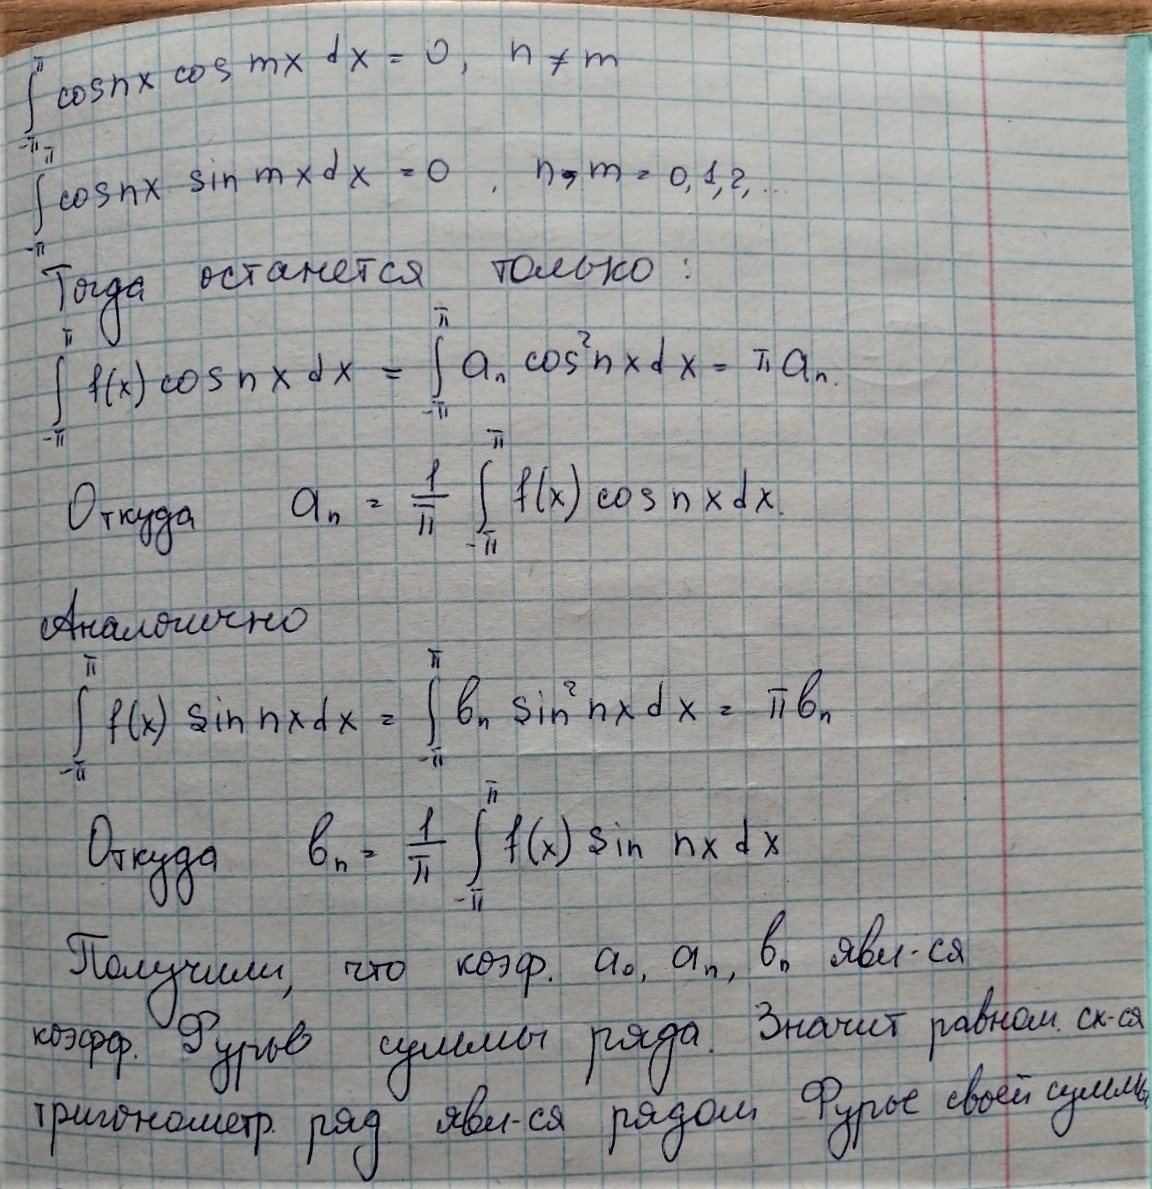 ∫_{-π}^{π} cos nx cos mx dx = 0, n ≠ m
∫_{-π}^{π} cos nx sin mx dx = 0, n, m = 0, 1, 2, ...
Тогда останется только:
∫_{-π}^{π} f(x) cos nx dx = ∫_{-π}^{π} aₙ cos² nx dx = π aₙ.
Откуда aₙ = 1/π ∫_{-π}^{π} f(x) cos nx dx.
Аналогично
∫_{-π}^{π} f(x) sin nx dx = ∫_{-π}^{π} bₙ sin² nx dx = π bₙ
Откуда bₙ = 1/π ∫_{-π}^{π} f(x) sin nx dx
Получили, что коэф. a₀, aₙ, bₙ явл-ся
коэфф. Фурье суммы ряда. Значит равном. сх-ся
тригонометр. ряд явл-ся рядом Фурье своей суммы.